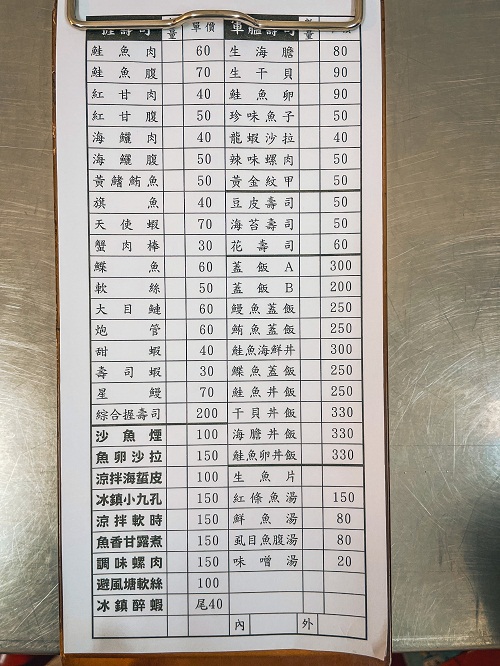 握壽司 量 單價 軍艦壽司 量
鮭魚肉 60 生海膽 80
鮭魚腹 70 生干貝 90
紅甘肉 40 鮭魚卵 90
紅甘腹 50 珍味魚子 50
海鱺肉 40 龍蝦沙拉 40
海鱺腹 50 辣味螺肉 50
黃鰭鮪魚 50 黃金紋甲 50
旗魚 40 豆皮壽司 50
天使蝦 70 海苔壽司 50
蟹肉棒 30 花壽司 60
鰈魚 60 蓋飯A 300
軟絲 50 蓋飯B 200
大目鰱 60 鰻魚蓋飯 250
炮管 60 鮪魚蓋飯 250
甜蝦 40 鮭魚海鮮丼 300
壽司蝦 30 鰈魚蓋飯 250
星鰻 70 鮭魚丼飯 250
綜合握壽司 200 干貝丼飯 330
沙魚煙 100 海膽丼飯 330
魚卵沙拉 150 鮭魚卵丼飯 330
涼拌海蜇皮 100 生魚片
冰鎮小九孔 150 紅條魚湯 150
涼拌軟時 150 鮮魚湯 80
魚香甘露煮 150 虱目魚腹湯 80
調味螺肉 150 味噌湯 20
避風塘軟絲 100
冰鎮醉蝦 尾40
內 外